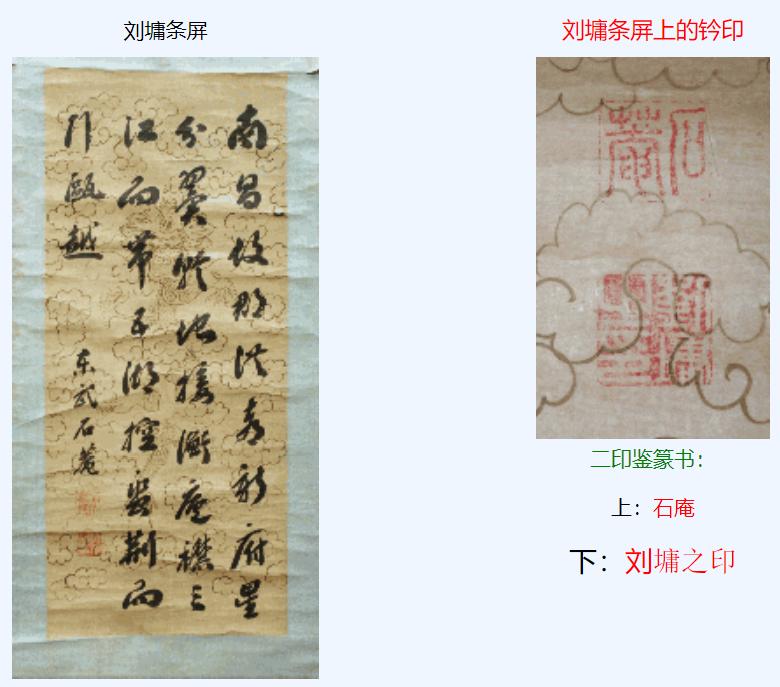 刘墉条屏
南昌故郡洪都新府星
分翼軫地接衡廬襟三
江而帶五湖控蠻荆而
引甌越
東武石菴
刘墉条屏上的钤印
石菴
劉墉之印
二印鉴篆书：
上：石庵
下：刘墉之印